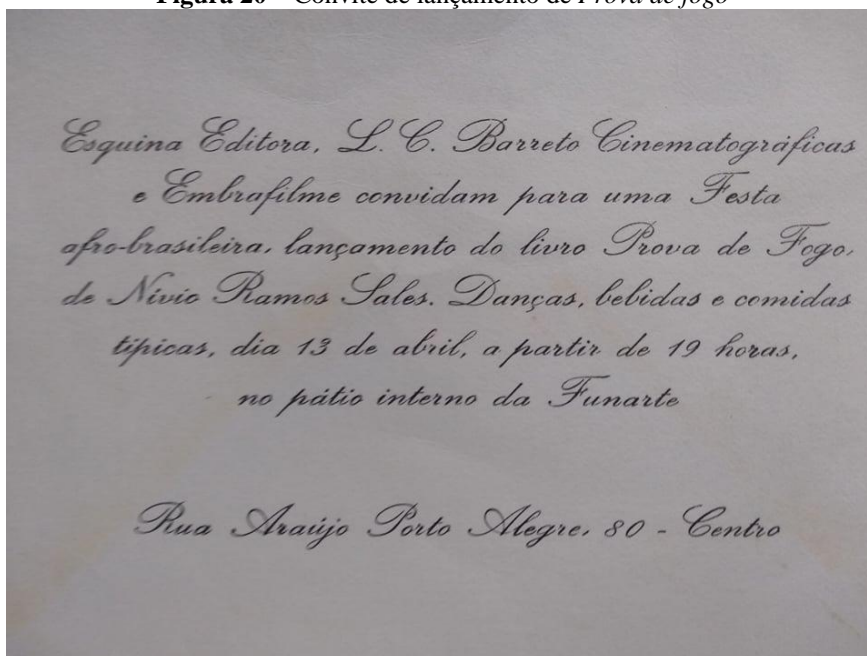 Convite de lançamento de Prova de fogo
Esquina Editora, L. C. Barreto Cinematográficas
e Embrafilme convidam para uma Festa
afro-brasileira, lançamento do livro Prova de Fogo,
de Nívio Ramos Sales. Danças, bebidas e comidas
típicas, dia 13 de abril, a partir de 19 horas,
no pátio interno da Funarte
Rua Araújo Porto Alegre, 80 - Centro